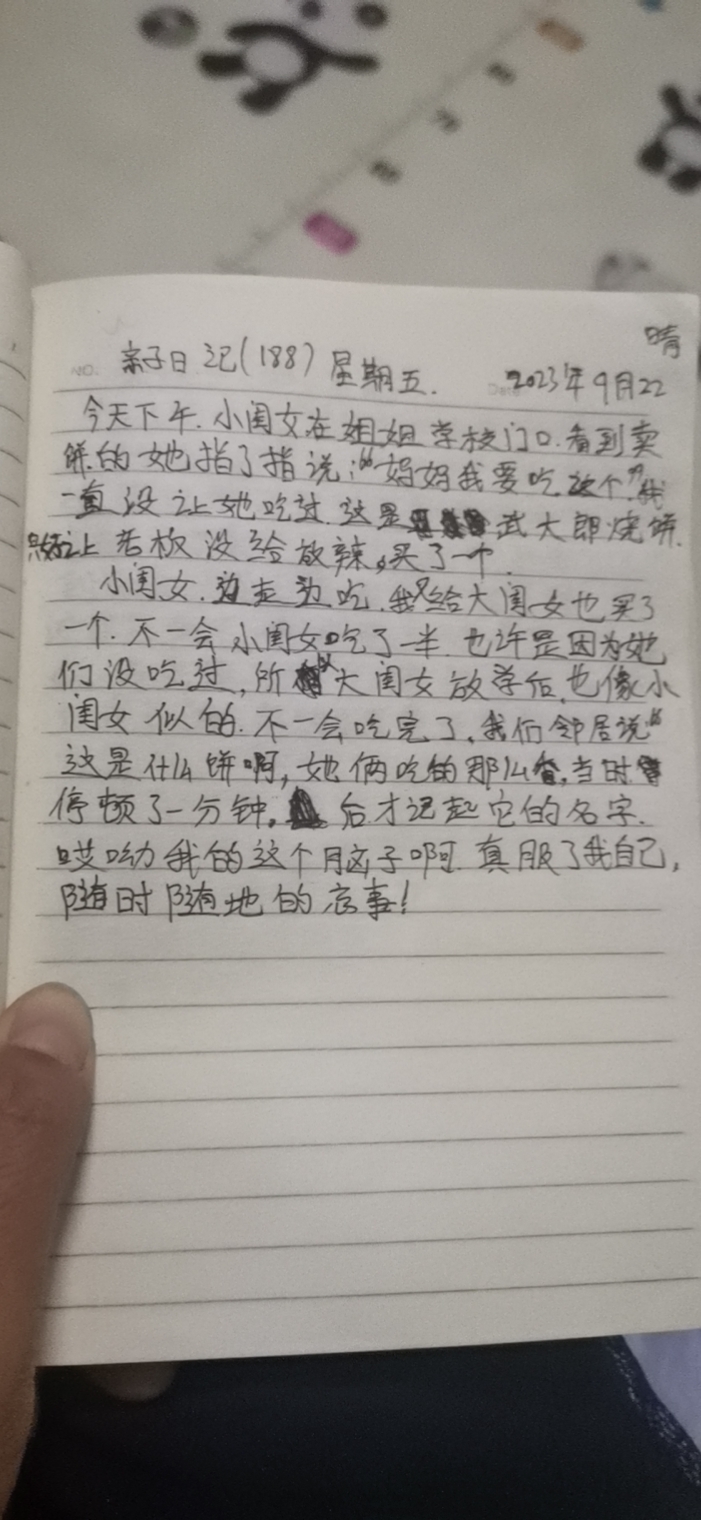 晴
亲子日记(188) 星期五. 2023年9月22
今天下午.小闺女在姐姐学校门口.看到卖
饼的她指了指说:“妈妈我要吃这个”.我
一直没让她吃过.这是武大郎烧饼.
只好让老板没给放辣,买了一个.
小闺女.边走边吃.我又给大闺女也买了
一个.不一会小闺女吃了一半.也许是因为她
们没吃过,所以大闺女放学后.也像小
闺女似的.不一会吃完了.我们邻居说“
这是什么饼啊,她俩吃的那么香.当时
停顿了一分钟.后才记起它的名字.
哎呦我的这个脑子啊.真服了我自己,
随时随地的忘事!